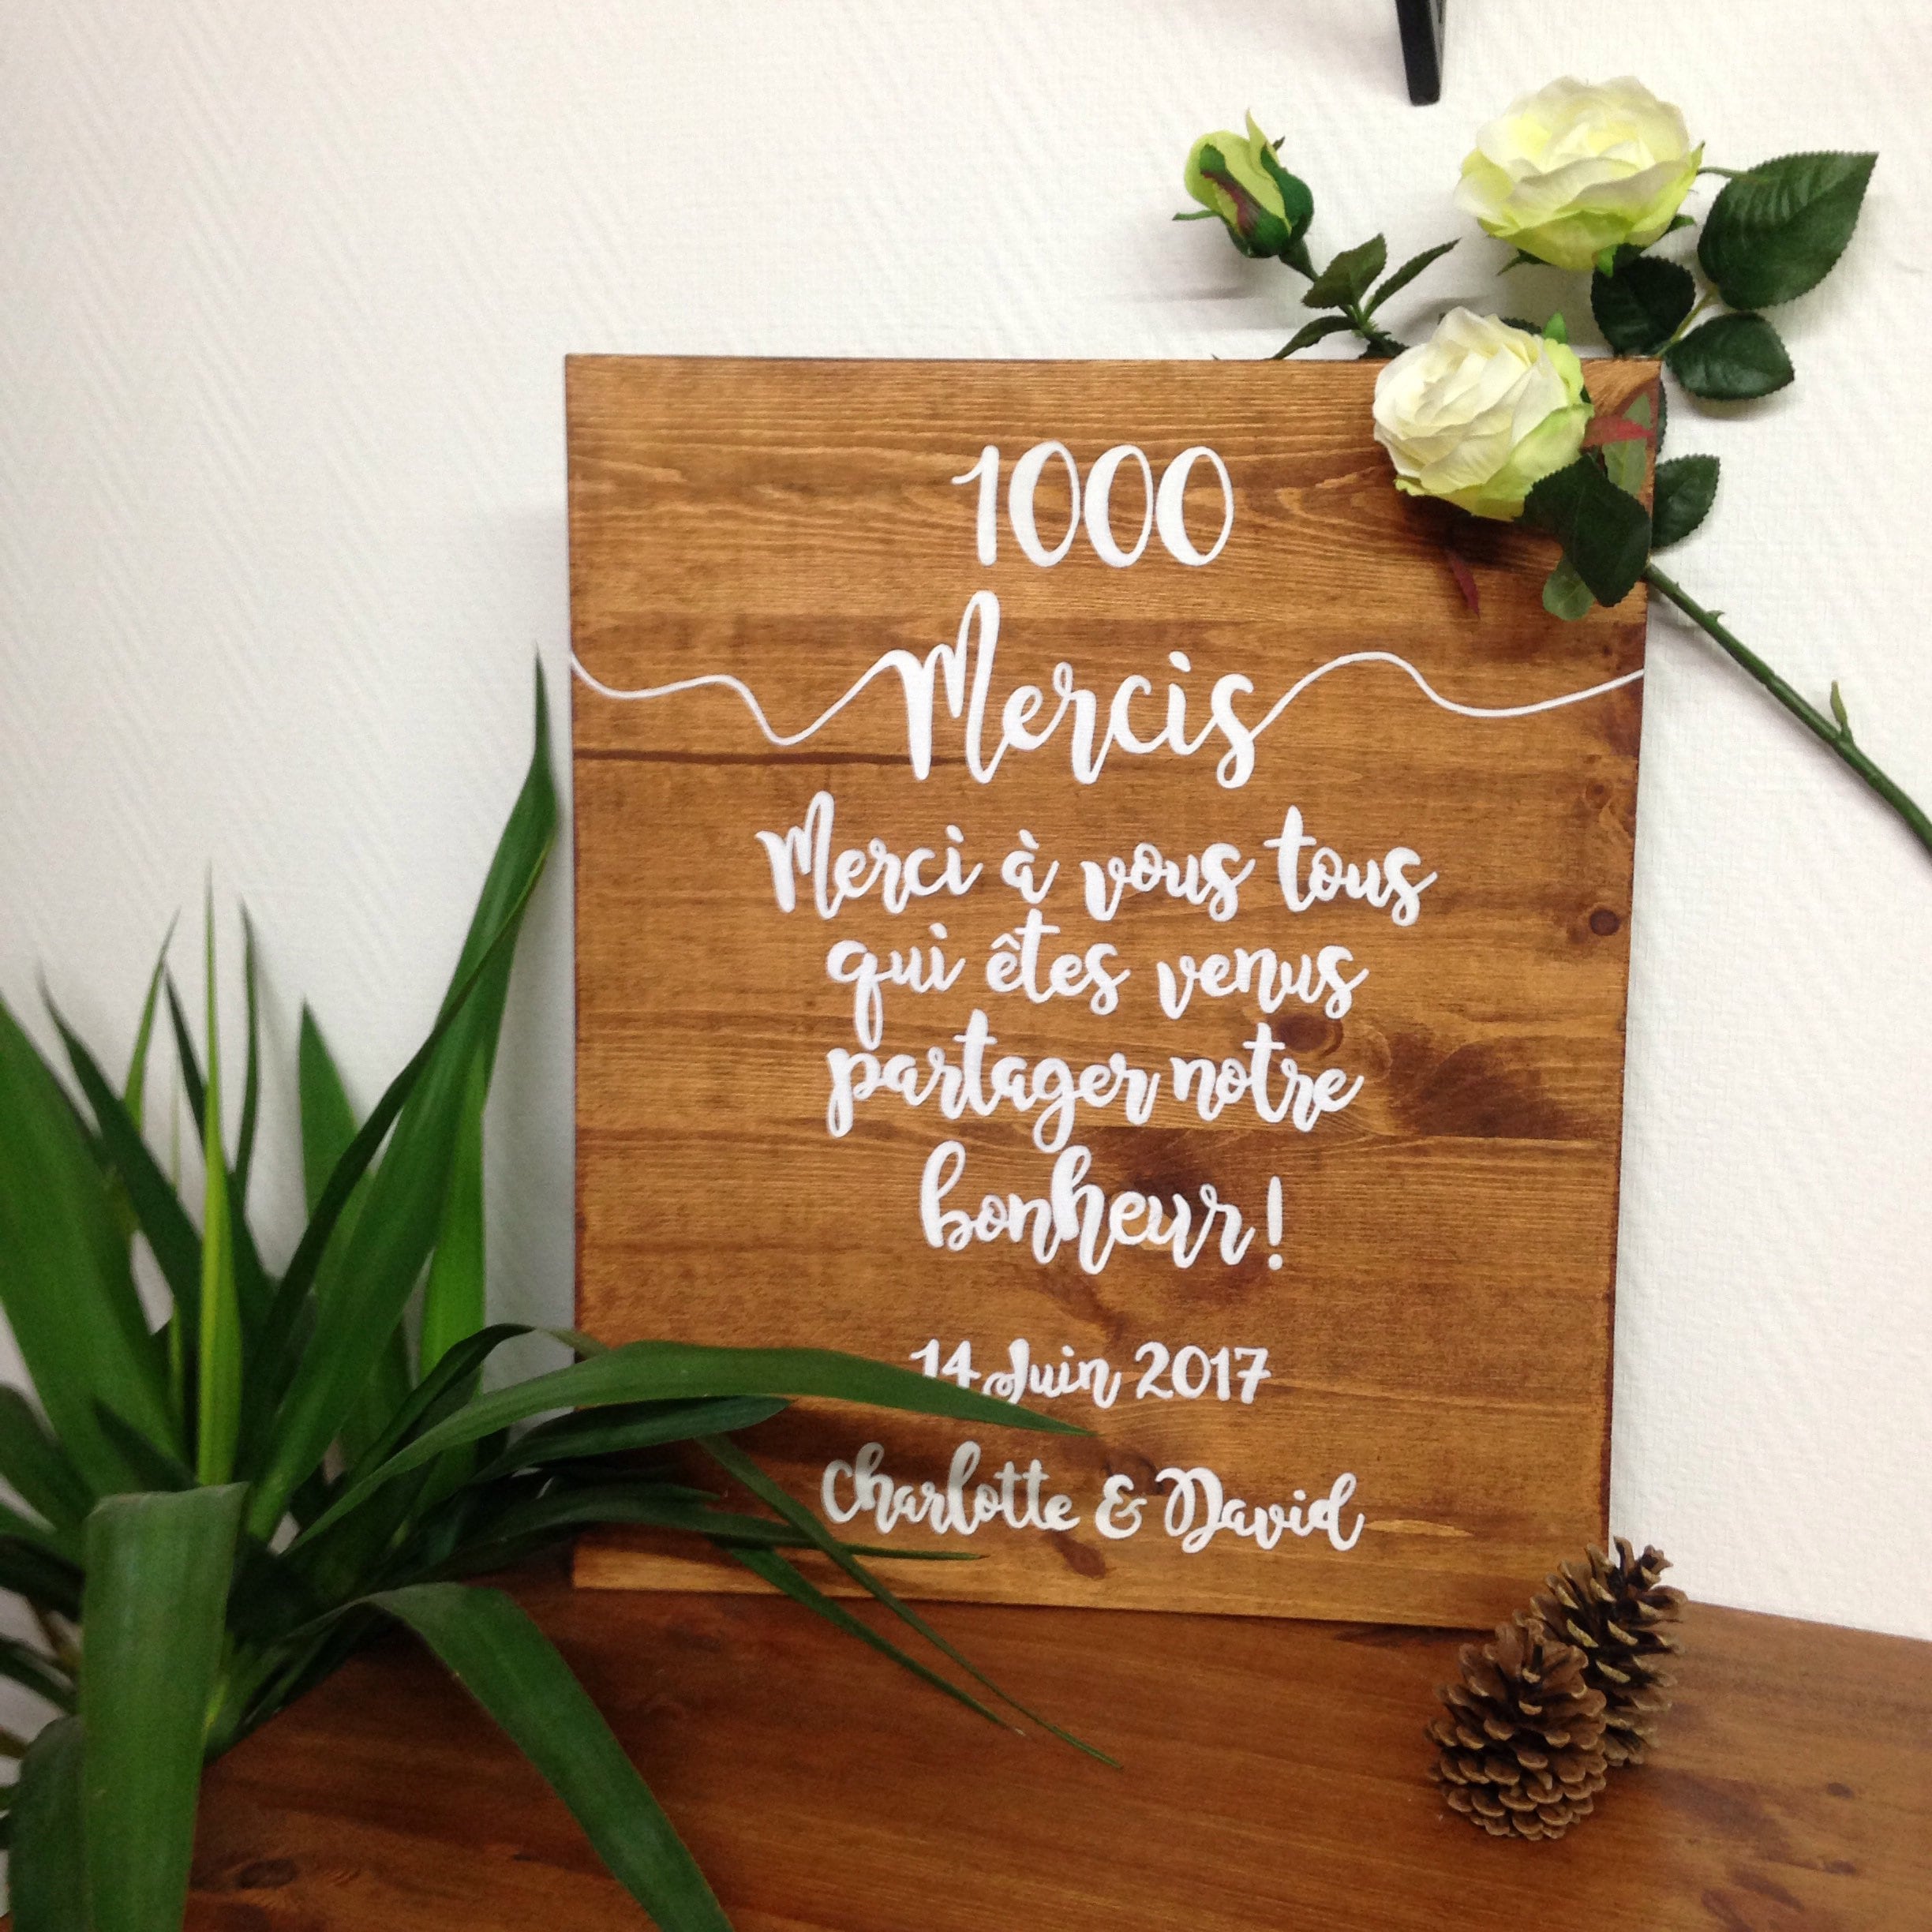 1000
Mercis
Merci à vous tous
qui êtes venus
partager notre
bonheur!
14 Juin 2017
Charlotte & David